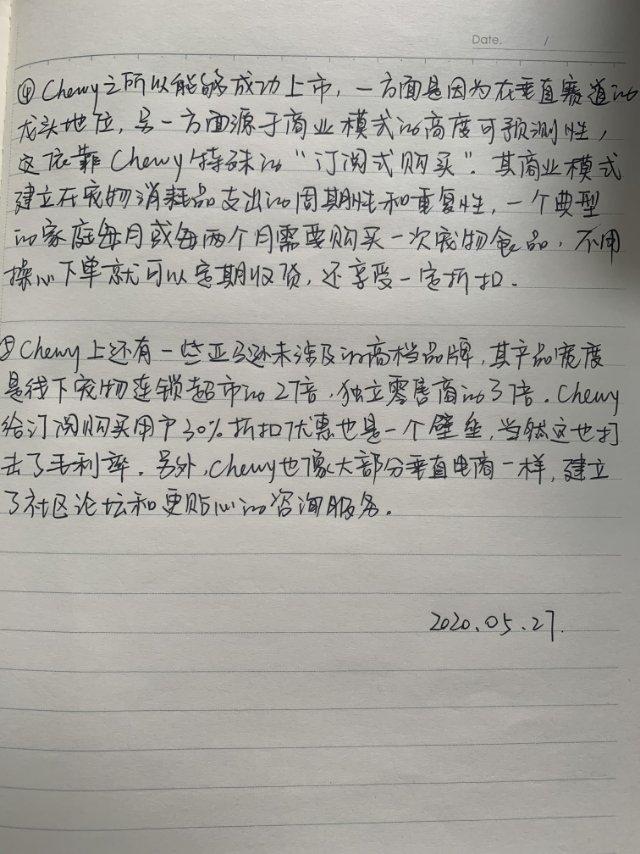 Date. /
④ Chewy之所以能够成功上市，一方面是因为在垂直赛道的
龙头地位，另一方面源于商业模式的高度可预测性，
这依靠Chewy特殊的“订阅式购买”. 其商业模式
建立在宠物消耗品支出的周期性和重复性，一个典型
的家庭每月或每两个月需要购买一次宠物食品，不用
操心下单就可以定期收货，还享受一定折扣.
⑤ Chewy上还有一些亚马逊未涉及的高档品牌，其产品宽度
是线下宠物连锁超市的2倍，独立零售商的3倍. Chewy
给订阅购买用户30%折扣优惠也是一个壁垒，当然这也打
击了毛利率. 另外，Chewy也像大部分垂直电商一样，建立
了社区论坛和更贴心的咨询服务.
2020.05.27.